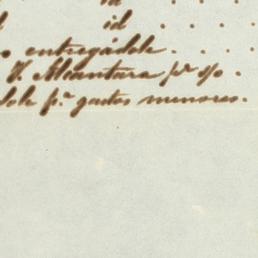 id . . . .
id . . . .
entregádole . . . .
J. Alcantara pr s/o .
dole p.a gastos menores.